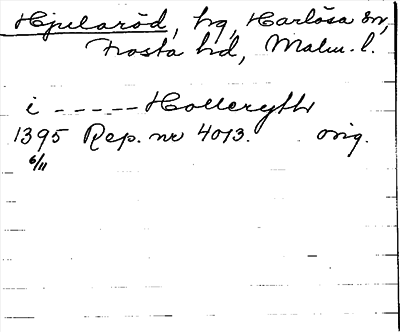 Hjularöd, hg, Harlösa sn,
Frosta hd, Malm. l.
i ----- Hollerydh
1395 Rep. nr 4013. orig.
6/11